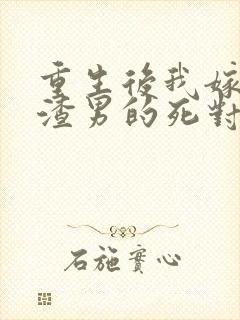 重生後我嫁
渣男的死對
石施實心